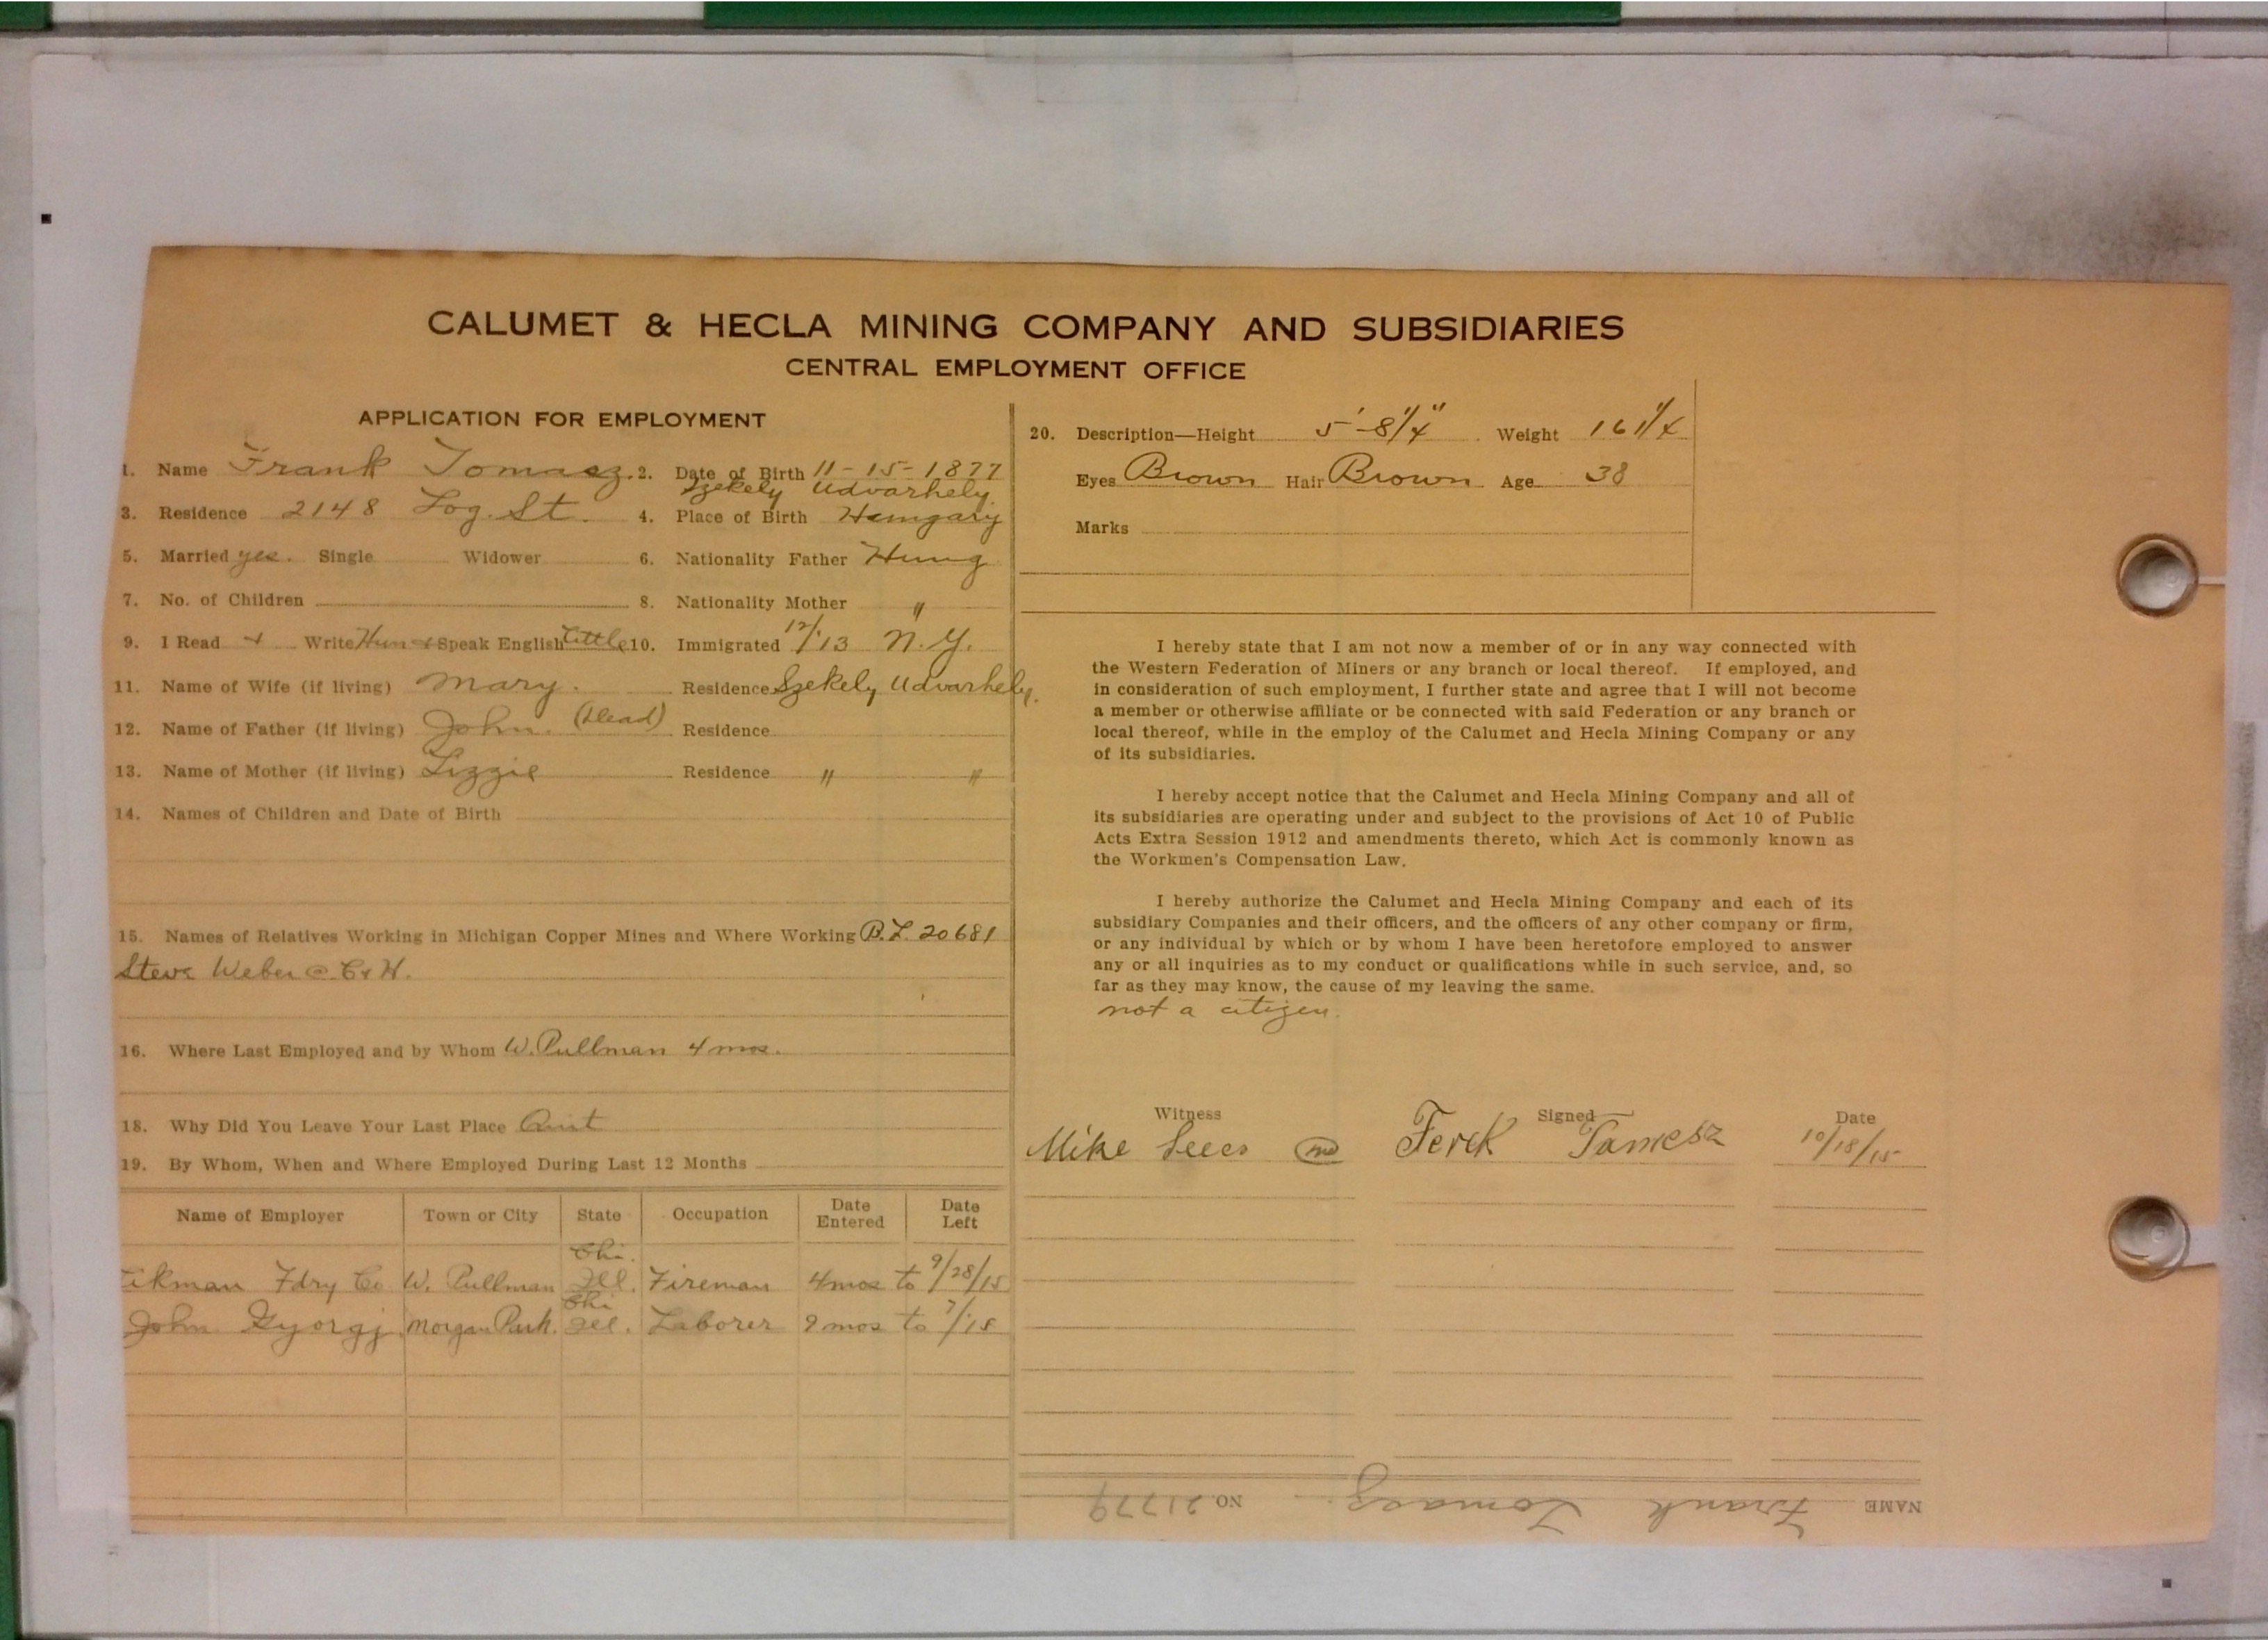 CALUMET & HECLA MINING COMPANY AND SUBSIDIARIES
CENTRAL EMPLOYMENT OFFICE
APPLICATION FOR EMPLOYMENT
1. Name Frank Tomasz. 2. Date of Birth 11-15-1877
Szekely Udvarhely.
3. Residence 2148 Log. St. 4. Place of Birth Hungary
5. Married yes. Single Widower 6. Nationality Father Hung
7. No. of Children 8. Nationality Mother "
9. I Read + Write Hun + Speak English little 10. Immigrated 12/13 N.Y.
11. Name of Wife (if living) Mary. Residence Szekely Udvarhely.
12. Name of Father (if living) John. (Dead) Residence
13. Name of Mother (if living) Lizzie Residence " "
14. Names of Children and Date of Birth
15. Names of Relatives Working in Michigan Copper Mines and Where Working B.L. 20681
Steve Weber @ C & H.
16. Where Last Employed and by Whom W. Pullman 4 mos.
18. Why Did You Leave Your Last Place Quit
19. By Whom, When and Where Employed During Last 12 Months
Name of Employer Town or City State Occupation Date Entered Date Left
Fdry Co W. Pullman Chi. Ill. Fireman 4 mos to 9/28/15
John Gyorgj Morgan Park. Chi Ill. Laborer 9 mos to 7/15
20. Description—Height 5'-8 1/4" Weight 161 1/4
Eyes Brown Hair Brown Age 38
Marks
I hereby state that I am not now a member of or in any way connected with
the Western Federation of Miners or any branch or local thereof. If employed, and
in consideration of such employment, I further state and agree that I will not become
a member or otherwise affiliate or be connected with said Federation or any branch or
local thereof, while in the employ of the Calumet and Hecla Mining Company or any
of its subsidiaries.
I hereby accept notice that the Calumet and Hecla Mining Company and all of
its subsidiaries are operating under and subject to the provisions of Act 10 of Public
Acts Extra Session 1912 and amendments thereto, which Act is commonly known as
the Workmen's Compensation Law.
I hereby authorize the Calumet and Hecla Mining Company and each of its
subsidiary Companies and their officers, and the officers of any other company or firm,
or any individual by which or by whom I have been heretofore employed to answer
any or all inquiries as to my conduct or qualifications while in such service, and, so
far as they may know, the cause of my leaving the same.
not a citizen.
Witness Signed Date
Mike Ferck Tamesz 10/18/15
NAME Frank Tomasz. NO. 21779